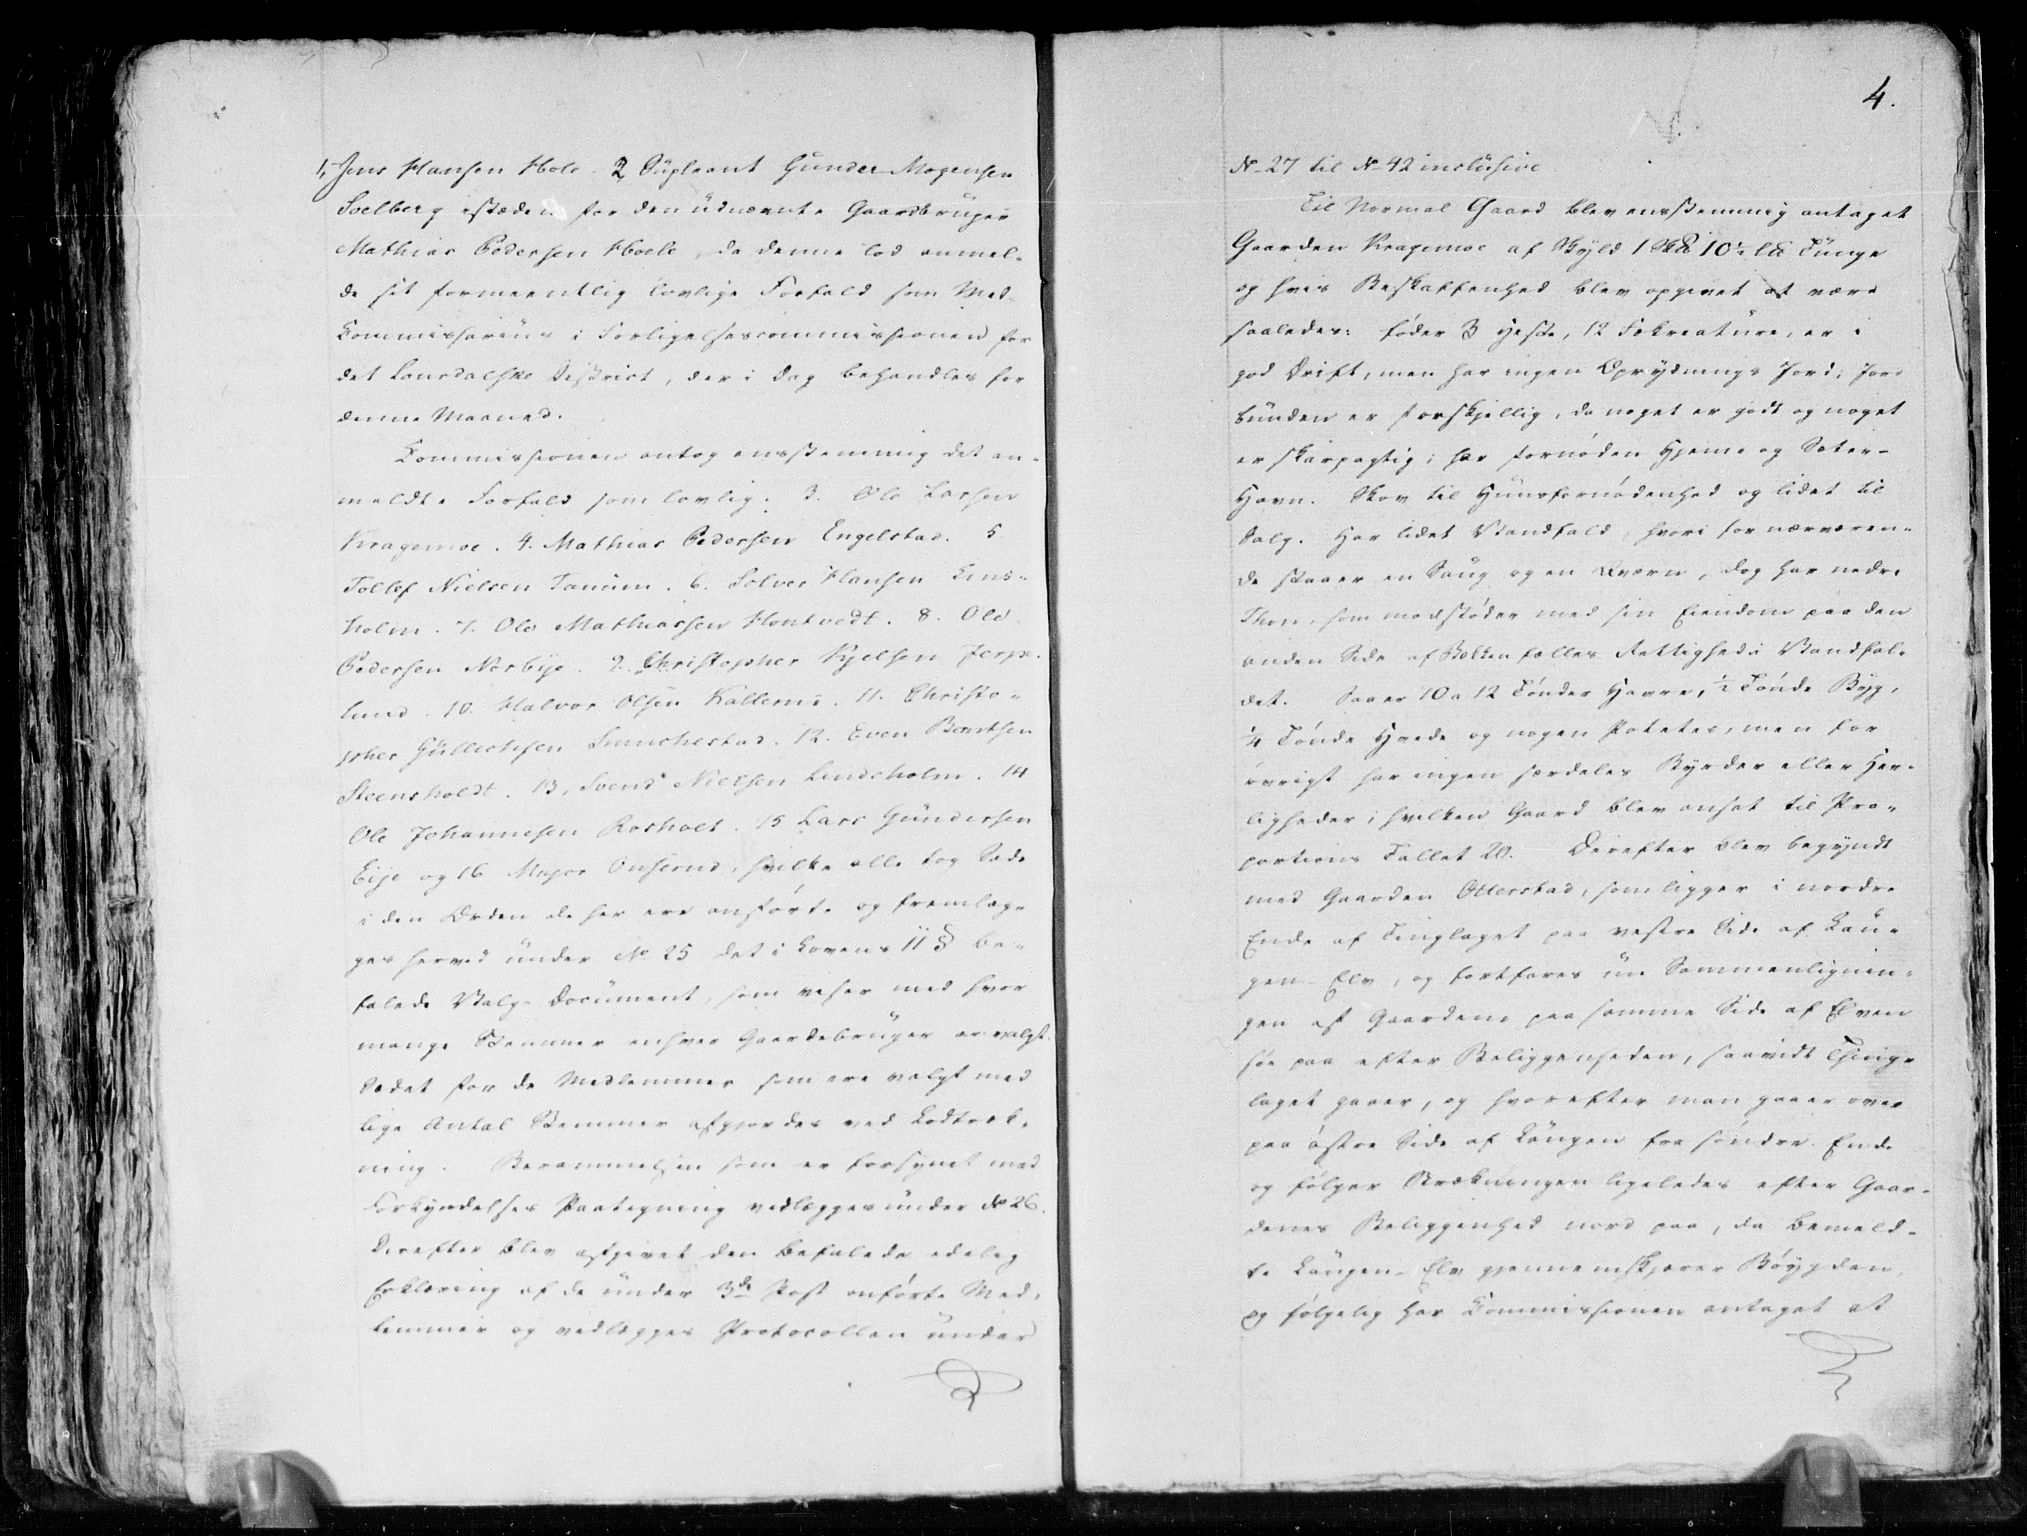 1, Jens Hansen Hole. 2, Supleant Gunder Mogensen
Solberg istæden for den udnævnte Gaardbruger
Mathias Pedersen Hoele, da denne lod anmel-
de sit formeentlig lovlige Forfald som Med-
Commissarius i Forligelsescommissionen for
det Lousdalske District, der i Dag behandles for
denne Maaned.
Commissionen antog eensstemmig det an-
meldte Forfald som lovlig. 3. Ole Larsen
Kragemoe. 4. Mathias Pedersen Engelstad. 5.
Tollef Nielsen Tanum. 6. Solver Hansen Lins-
holm. 7. Ole Mathiassen Hontvedt. 8. Ole
Pedersen Norbye. 9. Christopher Kjelsen Jerpe-
lund. 10. Halvor Olsen Kallerud. 11. Christo-
pher Gullichsen Smuchestad. 12. Even Berntsen
Steensholdt. 13, Svend Nielsen Lindsholm. 14
Ole Johannesen Rosholt. 15 Lars Gundersen
Eije og 16 Major Onserud, hvilke alle tog Sæde
i den Orden de her ere anførte og fremlæg-
ges herved under No 25 det i Lovens 11 § be-
falede Valg-Document, som viser med hvor
mange Stemmer enhver Gaardebruger er valgt.
Sædet for de Medlemmer som ere valgt med
lige Antal Stemmer afgjordes ved Lodtræk-
ning. Berammelsen som er forsynet med
Forkyndelses Paategning vedlægges under No 26.
Derefter blev afgivet den befalede edelig
Erklæring af de under 3de Post anførte Med-
lemmer og vedlægges Protocollen under
4.
No 27 til No 42 inclusive
Til Normal Gaard blev eensstemmig antaget
Gaarden Kragemoe af Skyld 1 Sk℔ 10½ L℔ Tunge
og hvis Beskaffenhed blev opgivet at være
saaledes: føder 3 Heste, 12 Fækreature, er i
god Drift, men har ingen Oprydnings Jord; Jord
bunden er forskjellig, da noget er godt og noget
er skarpagtig; har fornøden Hjeme og Sæter-
Havn. Skov til Huusfornødenhed og lidet til
Salg. Har lidet Vandfald, hvori for nærværen-
de staaer en Saug og en Qværn, dog har nedre
Thon, som modstøder med sin Eiendom paa den
anden Side af Bækken fælles Rettighed i Vandfal-
det. Saaer 10 a 12 Tønder Havre, ½ Tønde Byg,
¼ Tønde Hvede og nogen Potetes, men for
øvrigt har ingen særdeles Byrder eller Her-
ligheder; hvilken Gaard blev ansat til Pro-
portions Tallet 20. Derefter blev begyndt
med Gaarden Otterstad, som ligger i nordre
Ende af Tinglaget paa vestre Side af Lau-
gen Elv, og fortfares nu Sammenlignin-
gen af Gaardene paa samme Side af Elven
søe paa efter Beliggenheden, saavidt Thing-
laget gaaer, og hvorefter man gaaer over
paa østre Side af Laugen fra søndre Ende
og følger Strækningen ligeledes efter Gaar-
denes Beliggenhed nord paa, da bemeld-
te Laugen-Elv gjennemskjærer Bøygden,
og følgelig har Commissionen antaget at